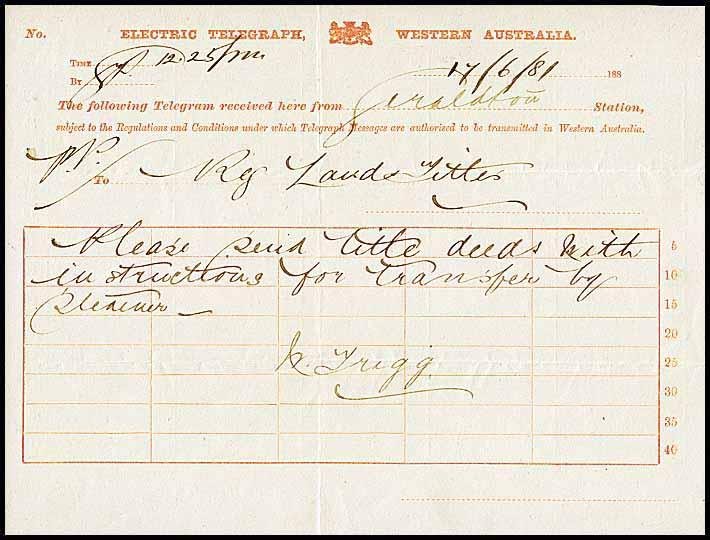 No. ELECTRIC TELEGRAPH, WESTERN AUSTRALIA.
TIME 12.25 pm 17/6/81 188
BY
The following Telegram received here from Geraldton Station,
subject to the Regulations and Conditions under which Telegraph Messages are authorised to be transmitted in Western Australia.
To Reg Lands Titles
Please send title deeds with 5
instructions for transfer by 10
steamer 15
20
Trigg 25
30
35
40